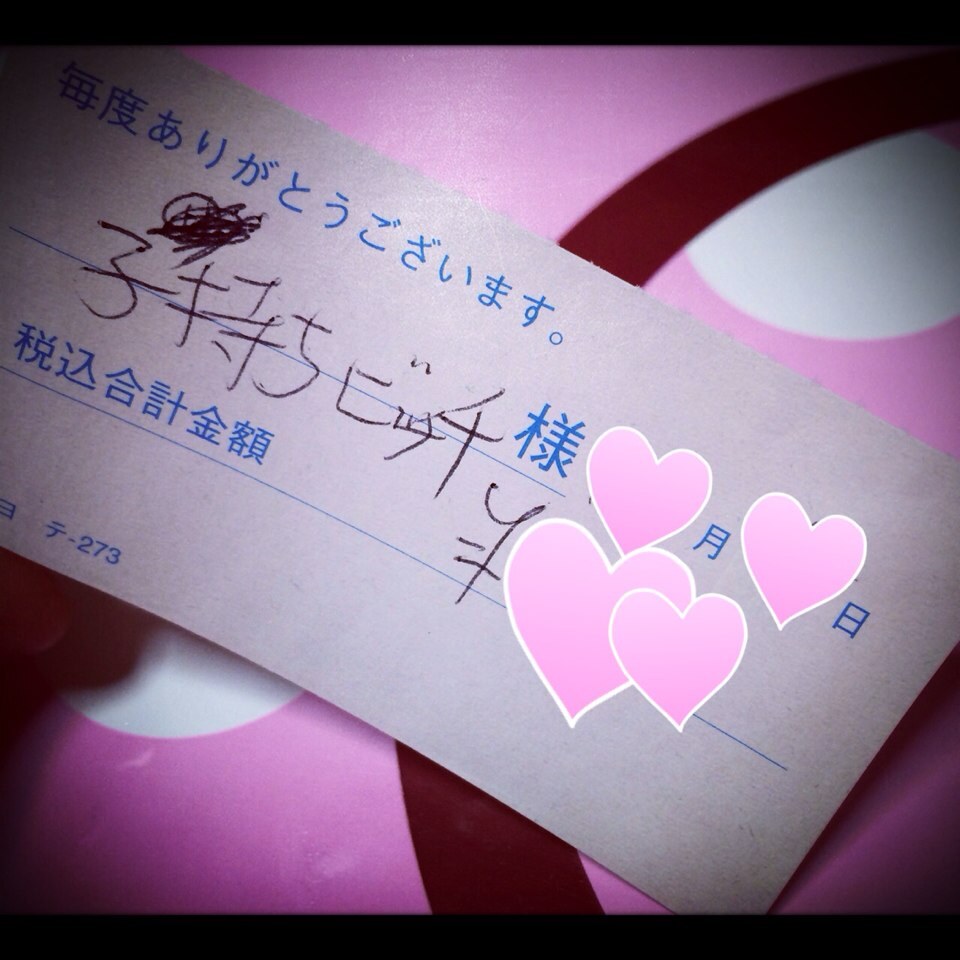 毎度ありがとうございます。
子持ちビッチ様
月 日
税込合計金額 ¥
ヨ テ-273